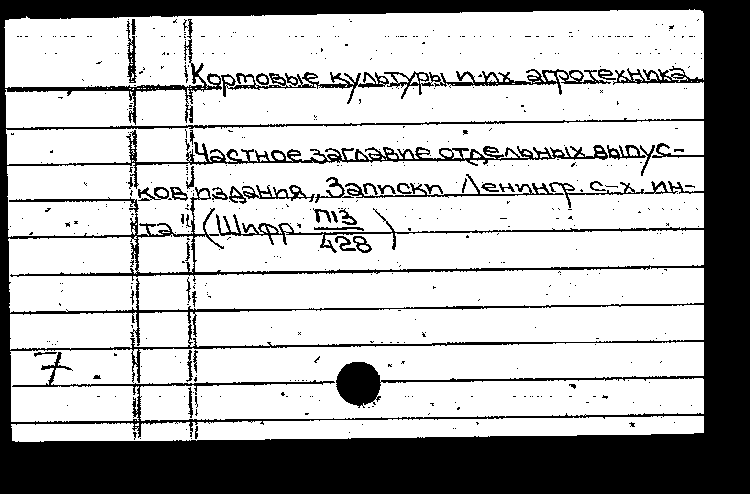 Кормовые культуры и их агротехника.
Частное заглавие отдельных выпус-
ков издания „Записки Ленингр. с-х. ин-
та" (Шифр: П13/428)
7.